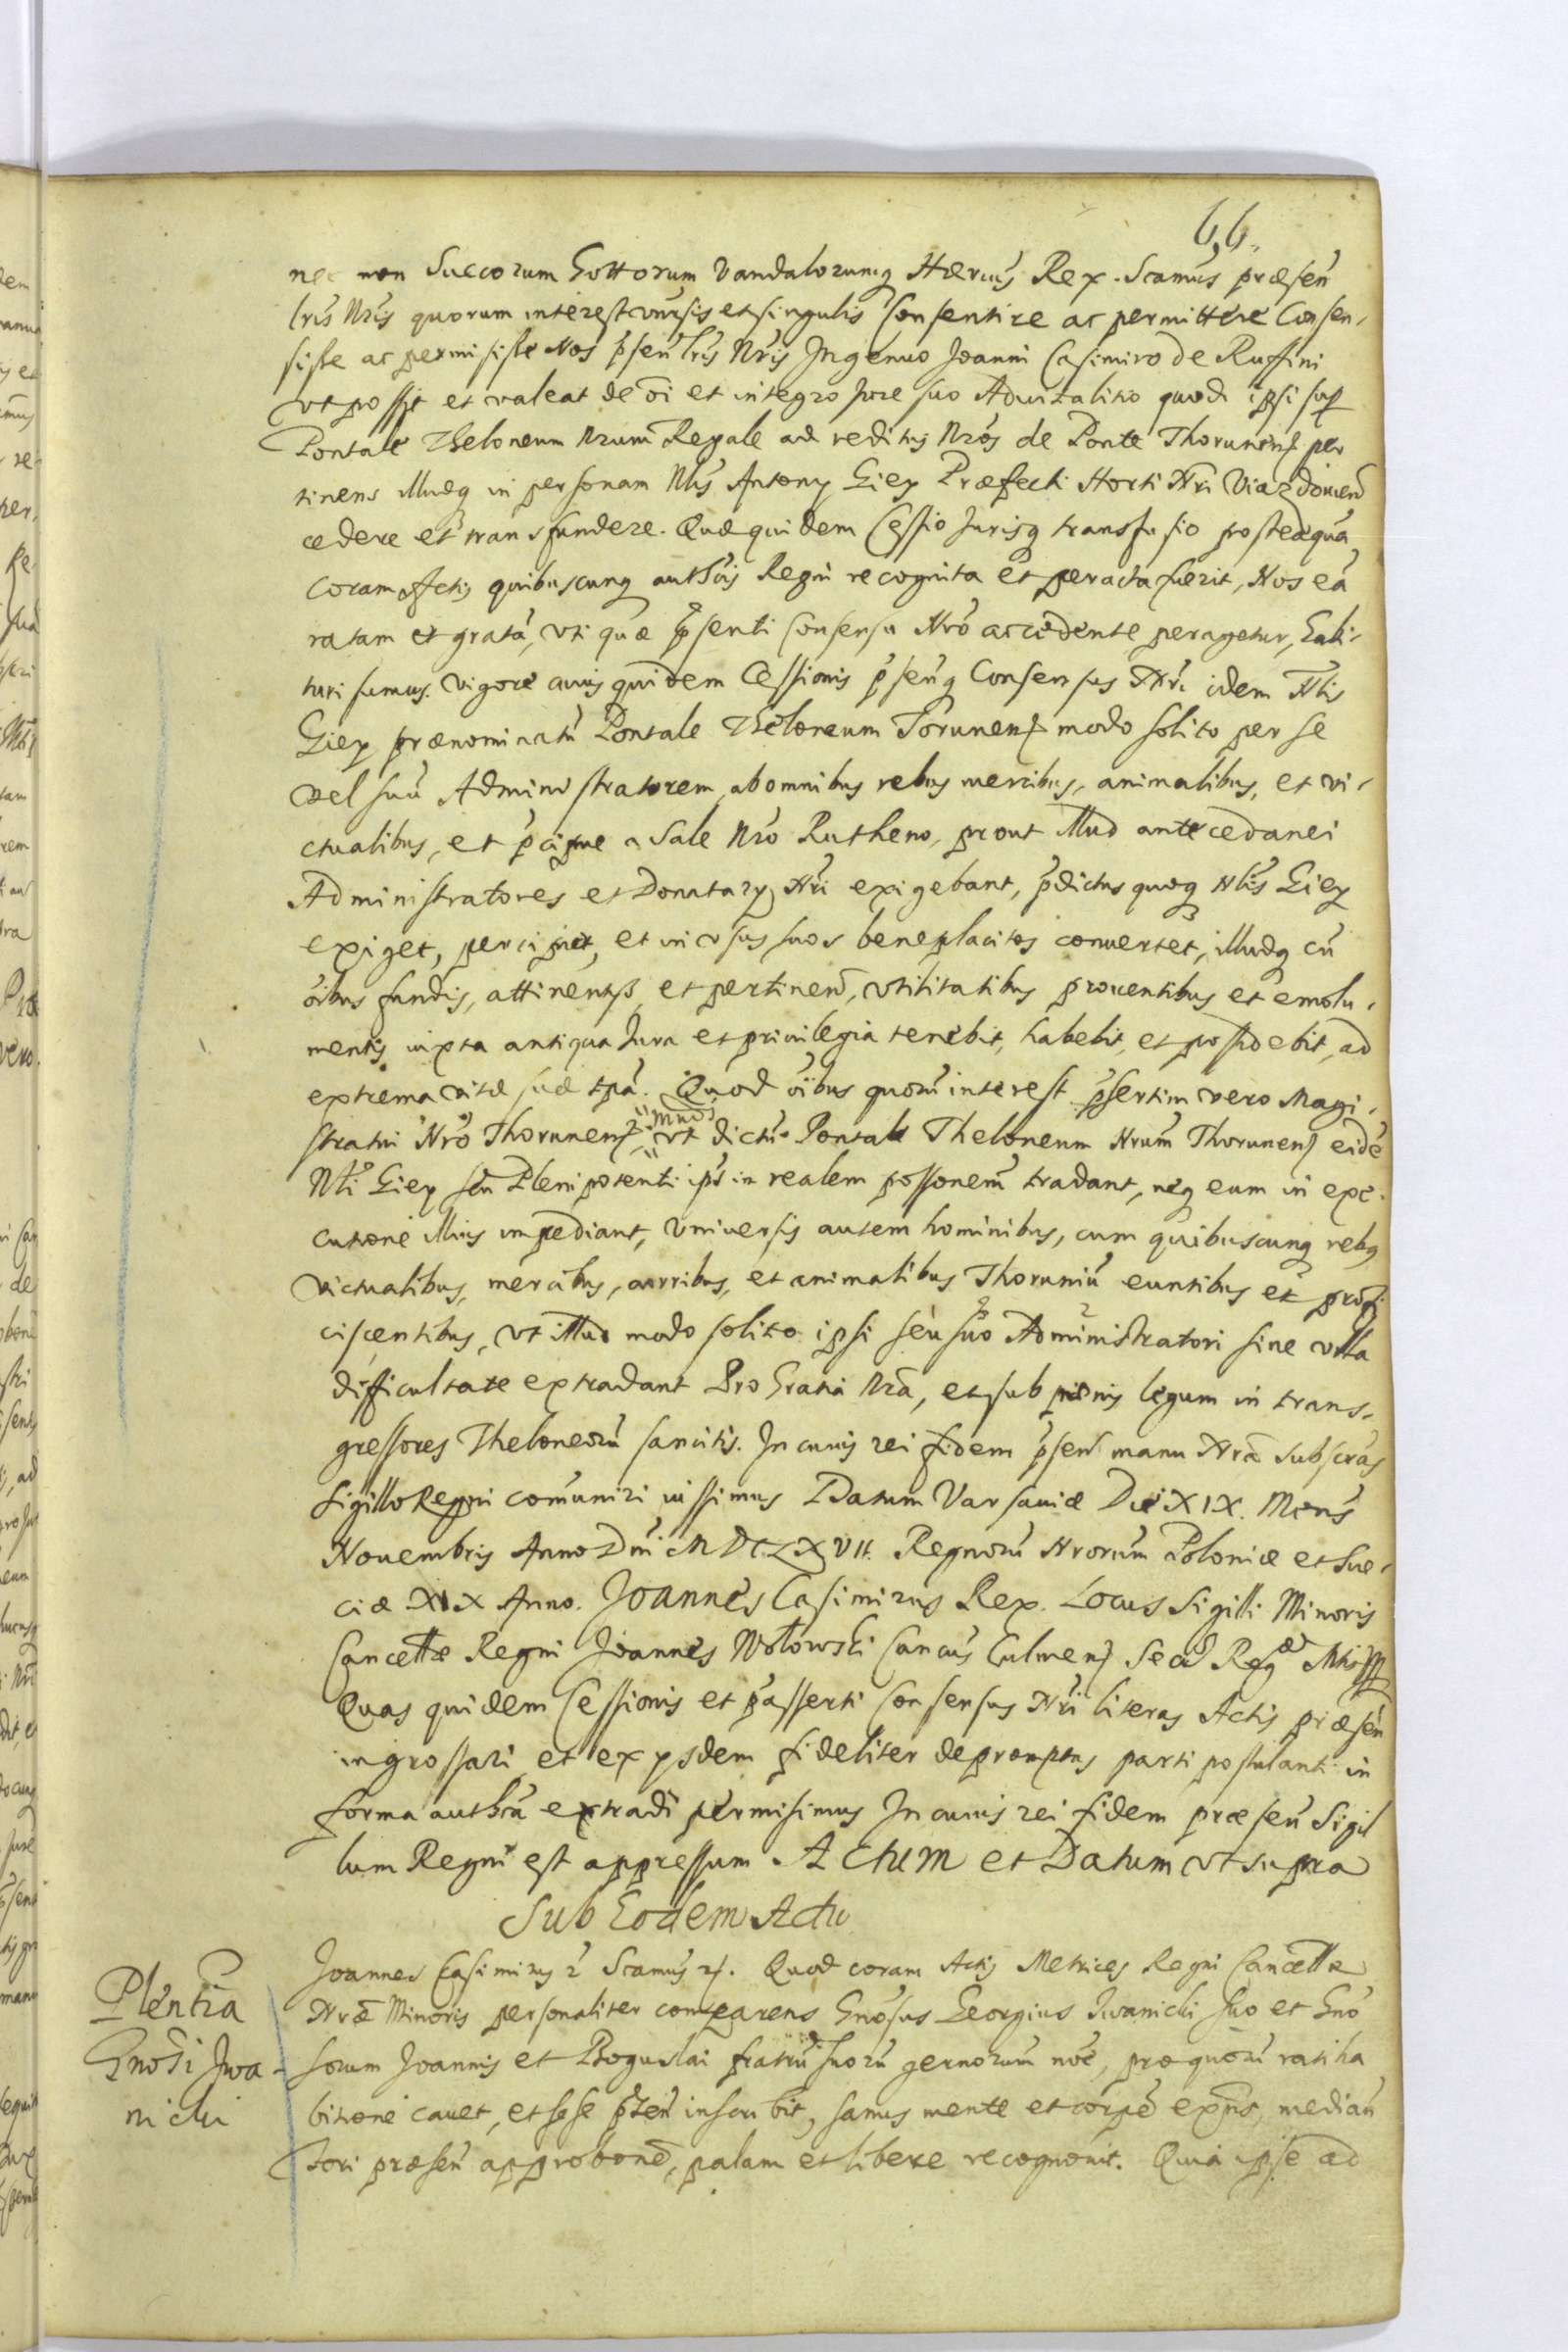 66.
nec non Suecorum Gottorum Vandalorumq Hærius Rex. Scamus præsen
lris Nris quorum interest vnisis et singulis Consentire ac permittere Consen,
sisse ac permisisse Nos psen lris Nris Ingenuo Joanni Casimiro de Ruffini
vt possit et valeat de oi et integro Jure suo Aduitalitio quod ipsi sup
Pontale Theloneum Nrum Regale ad reditus Nros de Ponte Thorunens per
tinens illudq in personam Nlis Antony Giey Præfecti Horti Nri Viazdouien
cedere et transfundere. Quæ quidem Cessio Jurisq transfusio posteaqua
coram Actis quibuscunq authcis Regni recognita et peracta fuerit, Nos ea
ratam et grata, vti quæ psenti Consensu Nro accedente peragetur, habi,
turi sumus. Vigore cuius quidem Cessionis psenq Consensus Nri idem Nlis
Giey prænominatu Pontale Theloneum Torunens modo solito per se
vel suu Administratorem, ab omnibus rebus mercibus, animalibus, et vi,
ctualibus, et pcipue a Sale Nro Rutheno, prout illud antecedanei
Administratores et Donatary Nri exigebant, pdictus quoq Nlis Giey
exiget, percipiet, et in vsus suos beneplacitos conuertet, illudq cu
oibus fundis, attinentys et pertinen, vtilitatibus prouentibus et emolu,
mentis iuxta antiqua Jura et priuilegia tenebit, habebit, et possidebit, ad
extrema vitæ suæ tpa. Quod oibus quoru interest psertim vero Magi,
stratui Nro Thorunens mnds vt dictu Pontale Theloneum Nrum Thorunens eide
Nli Giey seu Plenipotenti ips in realem possonem tradant, neq eum in exe
cutione illius impediant, Vniuersis autem hominibus, cum quibuscunq rebq
victualibus, mercibus, curribus, et animalibus Thoruniu euntibus et profi
ciscentibus, vt illud modo solito ipsi seu suo Administratori sine vlla
difficultate extradant Pro Gratia Nra, et sub pænis legum in trans,
gressores Theloneoru sancitis. In cuius rei fidem psen manu Nra subscras
Sigillo Regni comuniri iussimus Datum Varsauiæ Die XIX. Mens
Nouembris Anno Dni MDCLXVII. Regnoru Nrorum Poloniæ et Sue,
ciæ XIX Anno. Joannes Casimirus Rex. Locus Sigilli Minoris
Cancellæ Regni Joannes Wołowski Cancus Culmens Sec Reg Mtis
Quas quidem Cessionis et passerti Consensus Nri literas Actis præsen
ingrossari et ex ysdem fideliter depromptas parti postulanti in
forma authca extradi permisimus In cuius rei fidem præsen Sigil
lum Regni est appressum. Actum et Datum vt supra
Sub Eodem Actu
Plentia
Gnosi Iwa-
nicki
Joannes Casimirus Scamus. Quod coram Actis Metrices Regni Cancellæ
Nræ Minoris personaliter comparens Gnosus Georgius Iwanicki suo et Gno
sorum Joannis et Boguslai fratru suoru germorum noe, pro quoru ratiha
bitione cauet, et sese pten inscribit, sanus mente et corpe exns, median
tori præsen approbone, palam et libere recognouit. Quia ipse ad